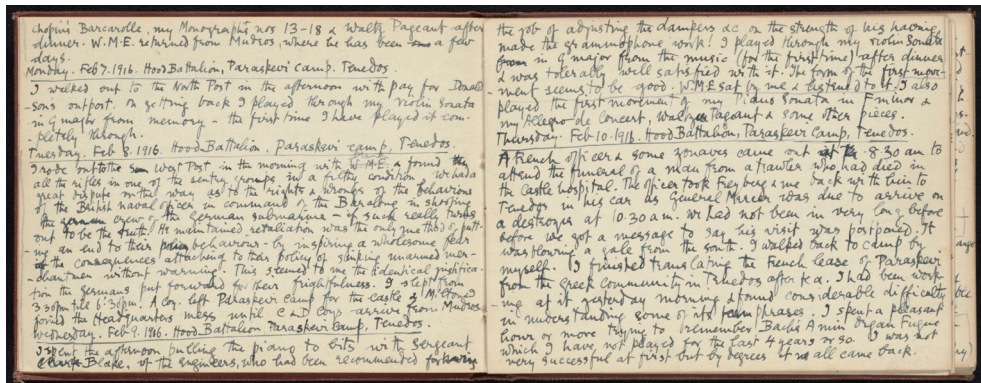 Chopin's Barcarolle, my Monographs nos 13-18 & Waltz Pageant after
dinner. W.M.E. returned from Mudros, where he has been a few
days.
Monday. Feb 7. 1916. Hood Battalion, Paraskevi camp. Tenedos.
I walked out to the North Post in the afternoon with pay for Donald
-sons outpost. On getting back I played through my violin sonata
in G major from memory - the first time I have played it com-
pletely through.
Tuesday. Feb 8. 1916. Hood Battalion. Paraskevi camp, Tenedos.
I rode out to the West Post in the morning with W.M.E. & found
all the rifles in one of the sentry groups in a filthy condition. We had a
great dispute on the way as to the rights & wrongs of the behaviour
of the British naval officer in command of the Baralong in shooting
the crew of the German submarine - if such really turns
out to be the truth. He maintained retaliation was the only method of putt-
-ing an end to their behaviour - by inspiring a wholesome fear
of the consequences attaching to their policy of sinking unarmed mer-
-chantmen without warning. This seemed to me the identical justifica-
tion the Germans put forward for their frightfulness. I slept from
3.30pm till 6.30pm. A Coy. left Paraskevi Camp for the castle &
joined the Headquarters mess until C & D Coys arrive from Mudros.
Wednesday. Feb 9. 1916. Hood Battalion Paraskevi Camp, Tenedos.
I spent the afternoon pulling the piano to bits with Sergeant
Blake, of the Engineers, who had been recommended for
the job of adjusting the dampers &c on the strength of his having
made the gramophone work! I played through my violin Sonata
in G major from the music (for the first time) after dinner
& was tolerably well satisfied with it. The form of the first move-
-ment seems to be good. W.M.E sat by me & listened to it. I also
played the first movement of my Piano Sonata in F minor &
my Allegro de Concert, Waltz Pageant & some other pieces.
Thursday. Feb 10. 1916. Hood Battalion, Paraskevi Camp, Tenedos.
A French officer & some zouaves came out at 8.30 am to
attend the funeral of a man from a trawler who had died in
the Castle hospital. The officer took Freyberg & me back with him to
Tenedos in his car as General Mercer was due to arrive on
a destroyer at 10.30 a.m. We had not been in very long before
before we got a message to say his visit was postponed. It
was blowing a gale from the south. I walked back to camp by
myself. I finished translating the French lease of Paraskevi
from the Greek community in Tenedos after tea. I had been work-
-ing at it yesterday morning & found considerable difficulty
in understanding some of its phrases. I spent a pleasant
hour or more trying to remember Bach's A min Organ Fugue
which I have not played for the last 4 years or so. I was not
very successful at first but by degrees it all came back.